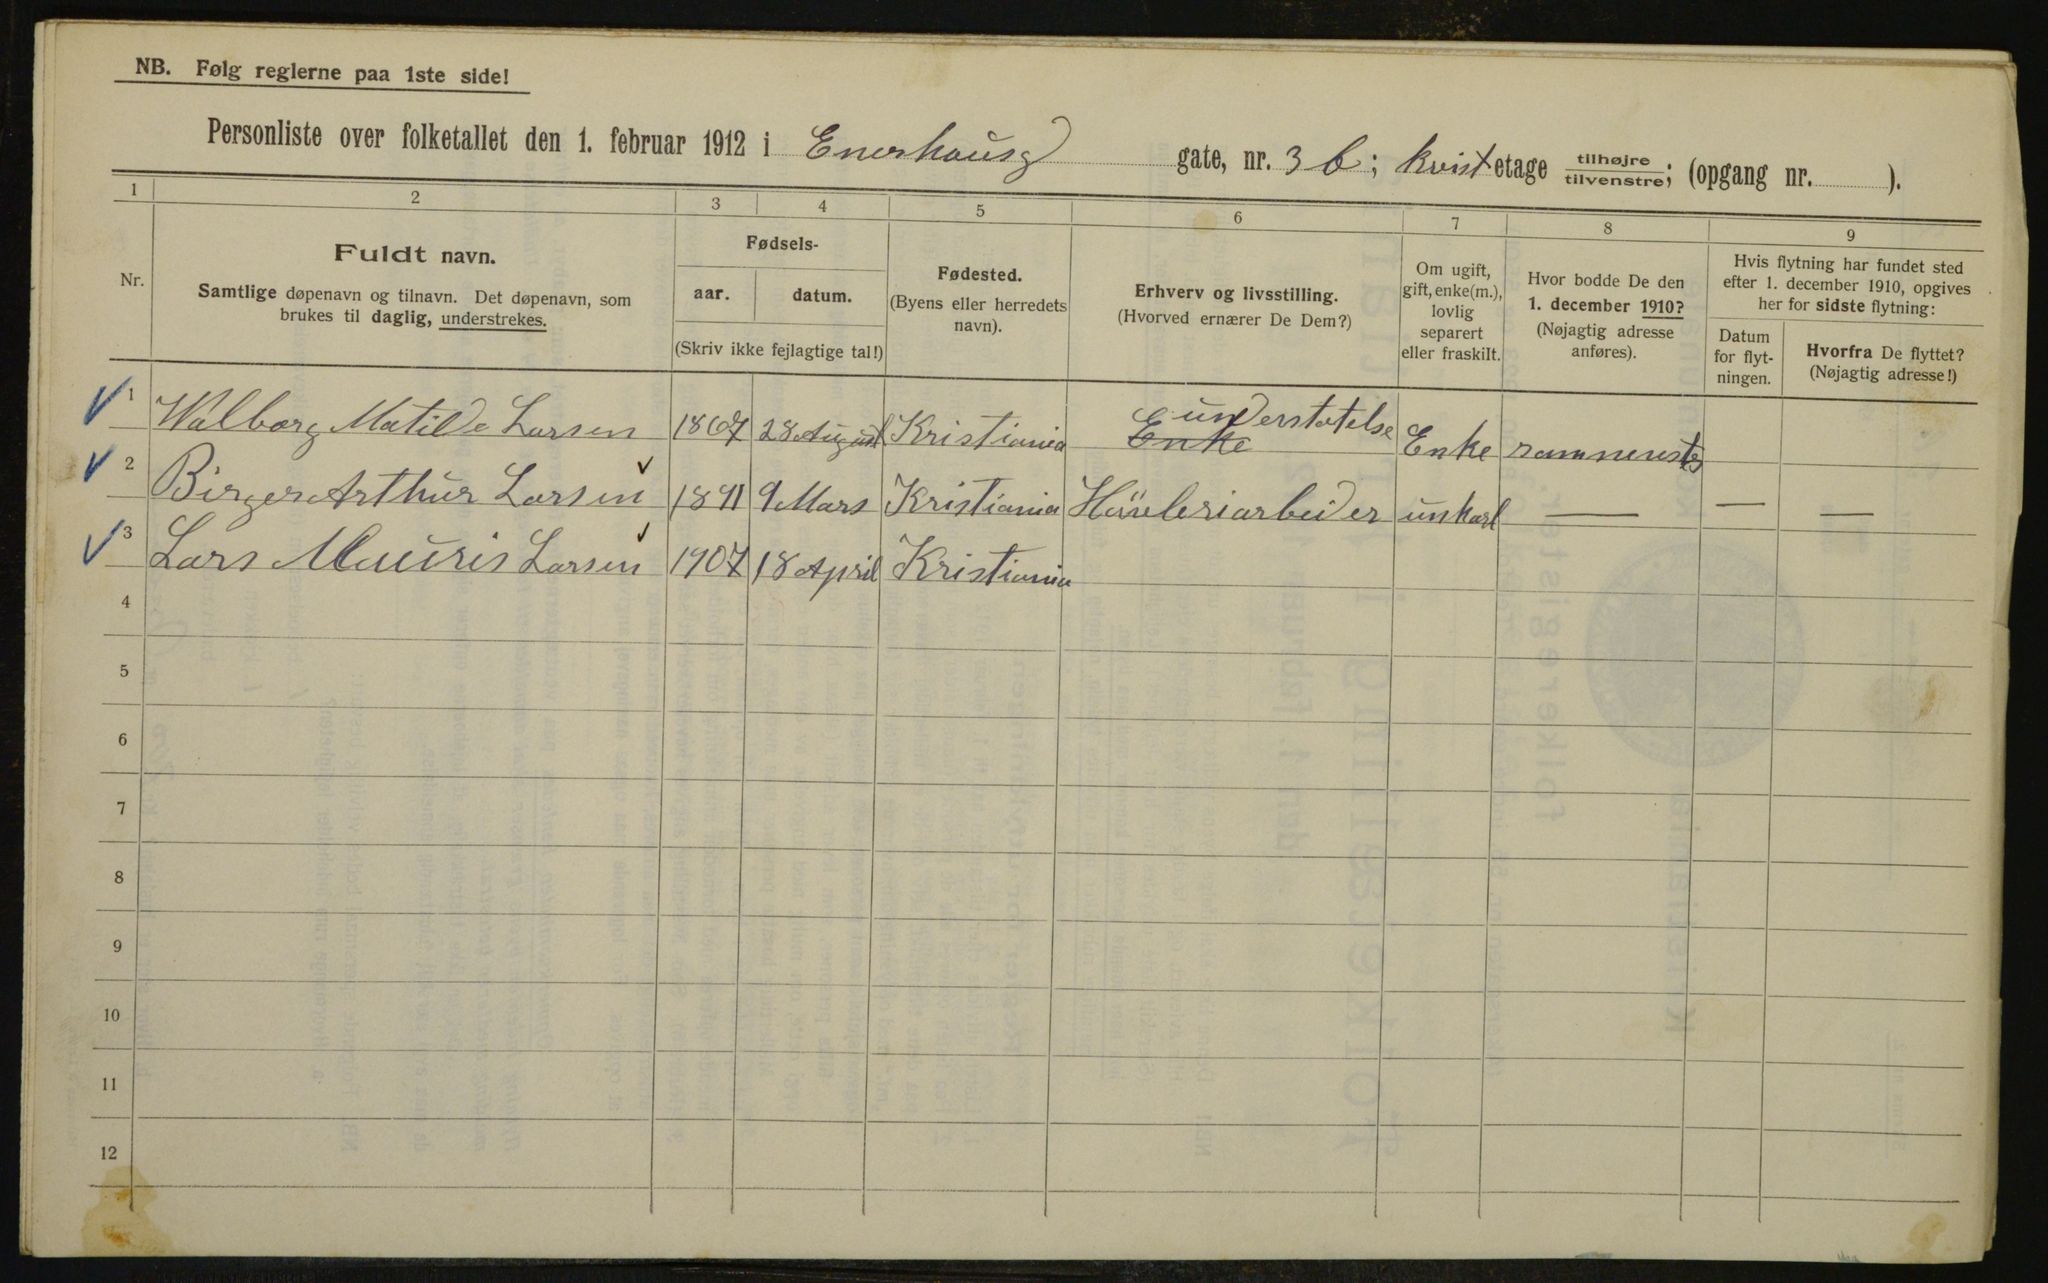 NB. Følg reglerne paa 1ste side!
Personliste over folketallet den 1. februar 1912 i Enerhausg gate, nr. 3 b; kvist etage tilhøjre tilvenstre; (opgang nr. ).
1 2 3 4 5 6 7 8 9
Nr.
Fuldt navn.
Samtlige døpenavn og tilnavn. Det døpenavn, som
brukes til daglig, understrekes.
Fødsels-
aar. datum.
(Skriv ikke fejlagtige tal!)
Fødested.
(Byens eller herredets
navn).
Erhverv og livsstilling.
(Hvorved ernærer De Dem?)
Om ugift,
gift, enke(m.),
lovlig
separert
eller fraskilt.
Hvor bodde De den
1. december 1910?
(Nøjagtig adresse
anføres).
Hvis flytning har fundet sted
efter 1. december 1910, opgives
her for sidste flytning:
Datum
for flyt-
ningen.
Hvorfra De flyttet?
(Nøjagtig adresse!)
1 Walborg Matilde Larsen 1867 28 August Kristiania understøtelse Enke Enke
2 Birger Arthur Larsen 1891 9 Mars Kristiania Høvleriarbeider unkarl — — —
3 Lars Mauris Larsen 1907 18 April Kristiania
4
5
6
7
8
9
10
11
12